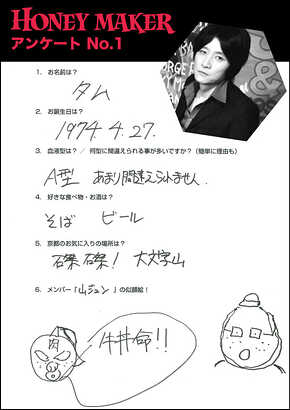 HONEY MAKER
アンケート No.1
1. お名前は？
タム
2. お誕生日は？
1974. 4. 27.
3. 血液型は？ ／ 何型に間違えられる事が多いですか？（簡単に理由も）
A型 あまり間違えられません.
4. 好きな食べ物・お酒は？
そば ビール
5. 京都のお気に入りの場所は？
磔磔! 大文字山
6. メンバー「山ジュン」の似顔絵！
肉
牛丼命!!